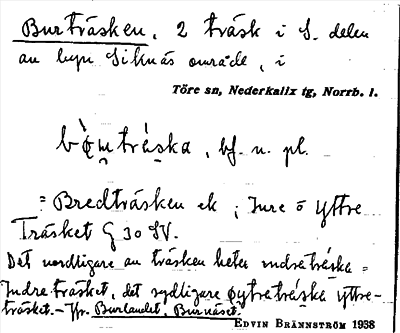 Burträsken, 2 träsk i S. delen
av byn Siknäs område, i
Töre sn, Nederkalix tg, Norrb. l.
träska, bf. n. pl.
= Bredträsken ek ; Inre o Yttre
Träsket G 30 SV.
Det nordligare av träsken heter indreträska =
Indre träsket, det sydligare øytreträska yttre-
träsket. – Jfr. Burlandet, Burnäset.
EDVIN BRÄNNSTRÖM 1938